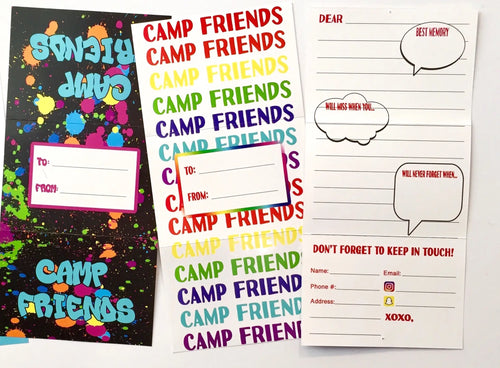 CAMP
FRIENDS
TO:
FROM:
CAMP
FRIENDS
CAMP FRIENDS
CAMP FRIENDS
CAMP FRIENDS
CAMP FRIENDS
CAMP FRIENDS
CAMP FRIENDS
CAMP FRIENDS
TO:
FROM:
CAMP FRIENDS
CAMP FRIENDS
CAMP FRIENDS
CAMP FRIENDS
CAMP FRIENDS
CAMP FRIENDS
CAMP FRIENDS
DEAR
BEST MEMORY
WILL MISS WHEN YOU...
WILL NEVER FORGET WHEN...
DON'T FORGET TO KEEP IN TOUCH!
Name: Email:
Phone #:
Address:
XOXO,